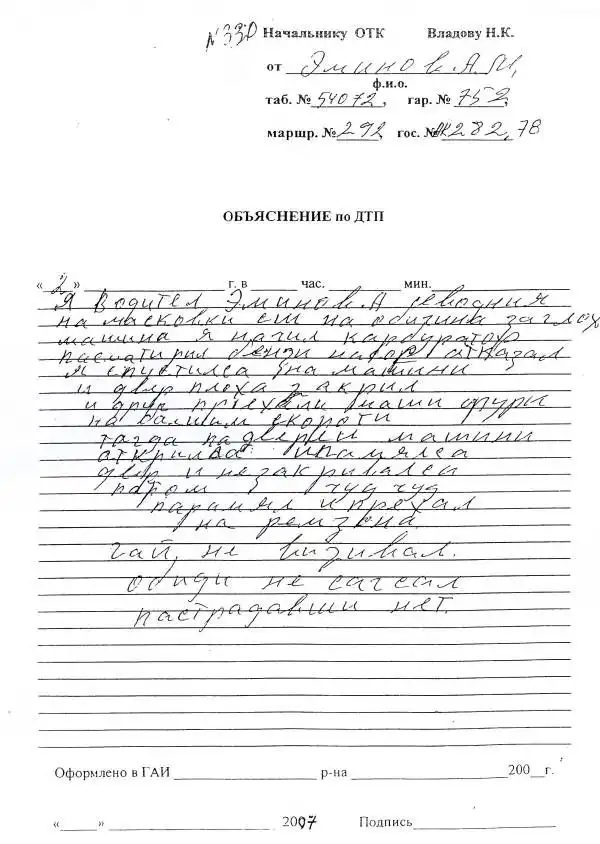 N 330 Начальнику ОТК Владову Н.К.
от Эминов А.М,
ф.и.о.
таб. № 54072, гар. № 752,
маршр. № 292 гос. № 282, 78
ОБЪЯСНЕНИЕ по ДТП
« 2 » г. в час. мин.
Я Водител Эминов.А севодния
на масковки сш на обичина заглох
машина я начил карбуратор
пасматирил бензи насор атказал
Я спустилса на машини
и двер плоха закрил
и друк приехали наши фуры
на балшим скорости
тагда па двери машини
аткрилса памялса
двер и не закривалса
патом чуд чуд
парамял и прехал
на ремзона.
Гай, не визивал.
обиди не сагсал
пастрадавши нет.
Оформлено в ГАИ р-на 200 г.
« » 2007 Подпись